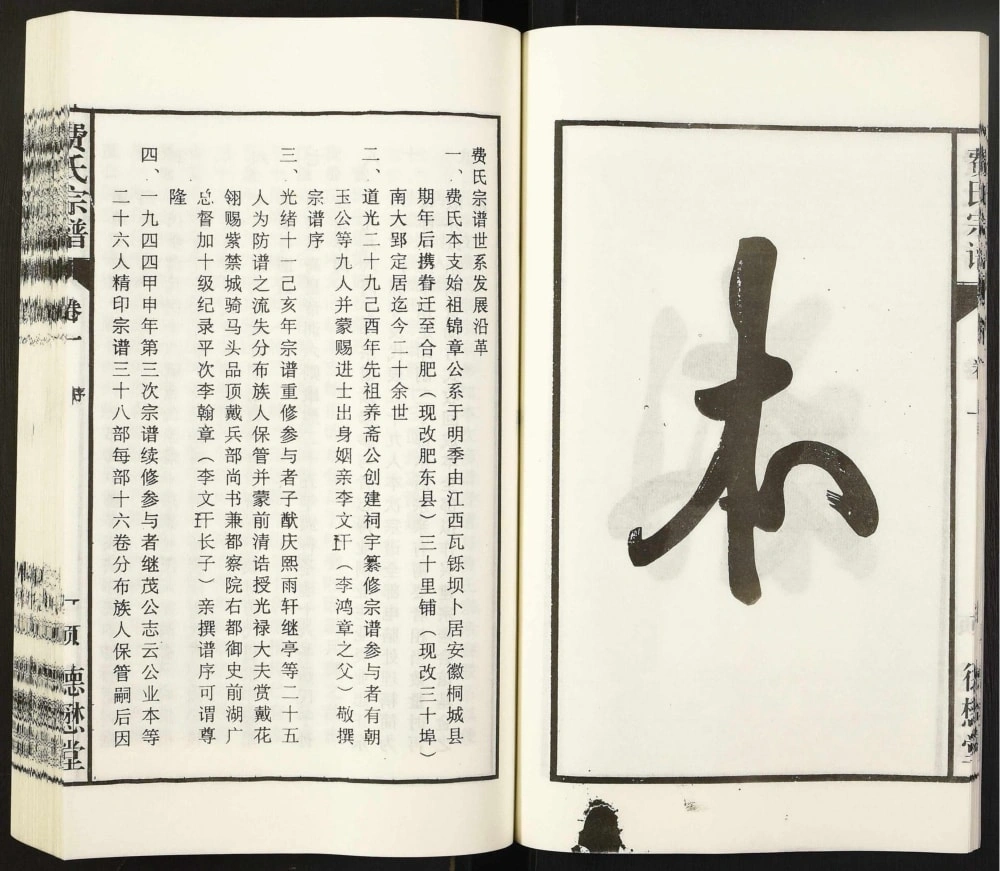 费氏宗谱
本
费氏宗谱世系发展沿革
一、费氏本支始祖锦章公系于明季由江西瓦铄坝卜居安徽桐城县
期年后携眷迁至合肥（现改肥东县）三十里铺（现改三十埠）
南大郢定居迄今二十余世
二、道光二十九己酉年先祖养斋公创建祠宇纂修宗谱参与者有朝
玉公等九人并蒙赐进士出身姻亲李文玕（李鸿章之父）敬撰
宗谱序
三、光绪十一己亥年宗谱重修参与者子猷庆熙雨轩继亭等二十五
人为防谱之流失分布族人保管并蒙前清诰授光禄大夫赏戴花
翎赐紫禁城骑马头品顶戴兵部尚书兼都察院右都御史前湖广
总督加十级纪录平次李翰章（李文玕长子）亲撰谱序可谓尊
隆
四、一九四四甲申年第三次宗谱续修参与者继茂公志云公业本等
二十六人精印宗谱三十八部每部十六卷分布族人保管嗣后因
费氏宗谱
卷一
序
一页
德懋堂